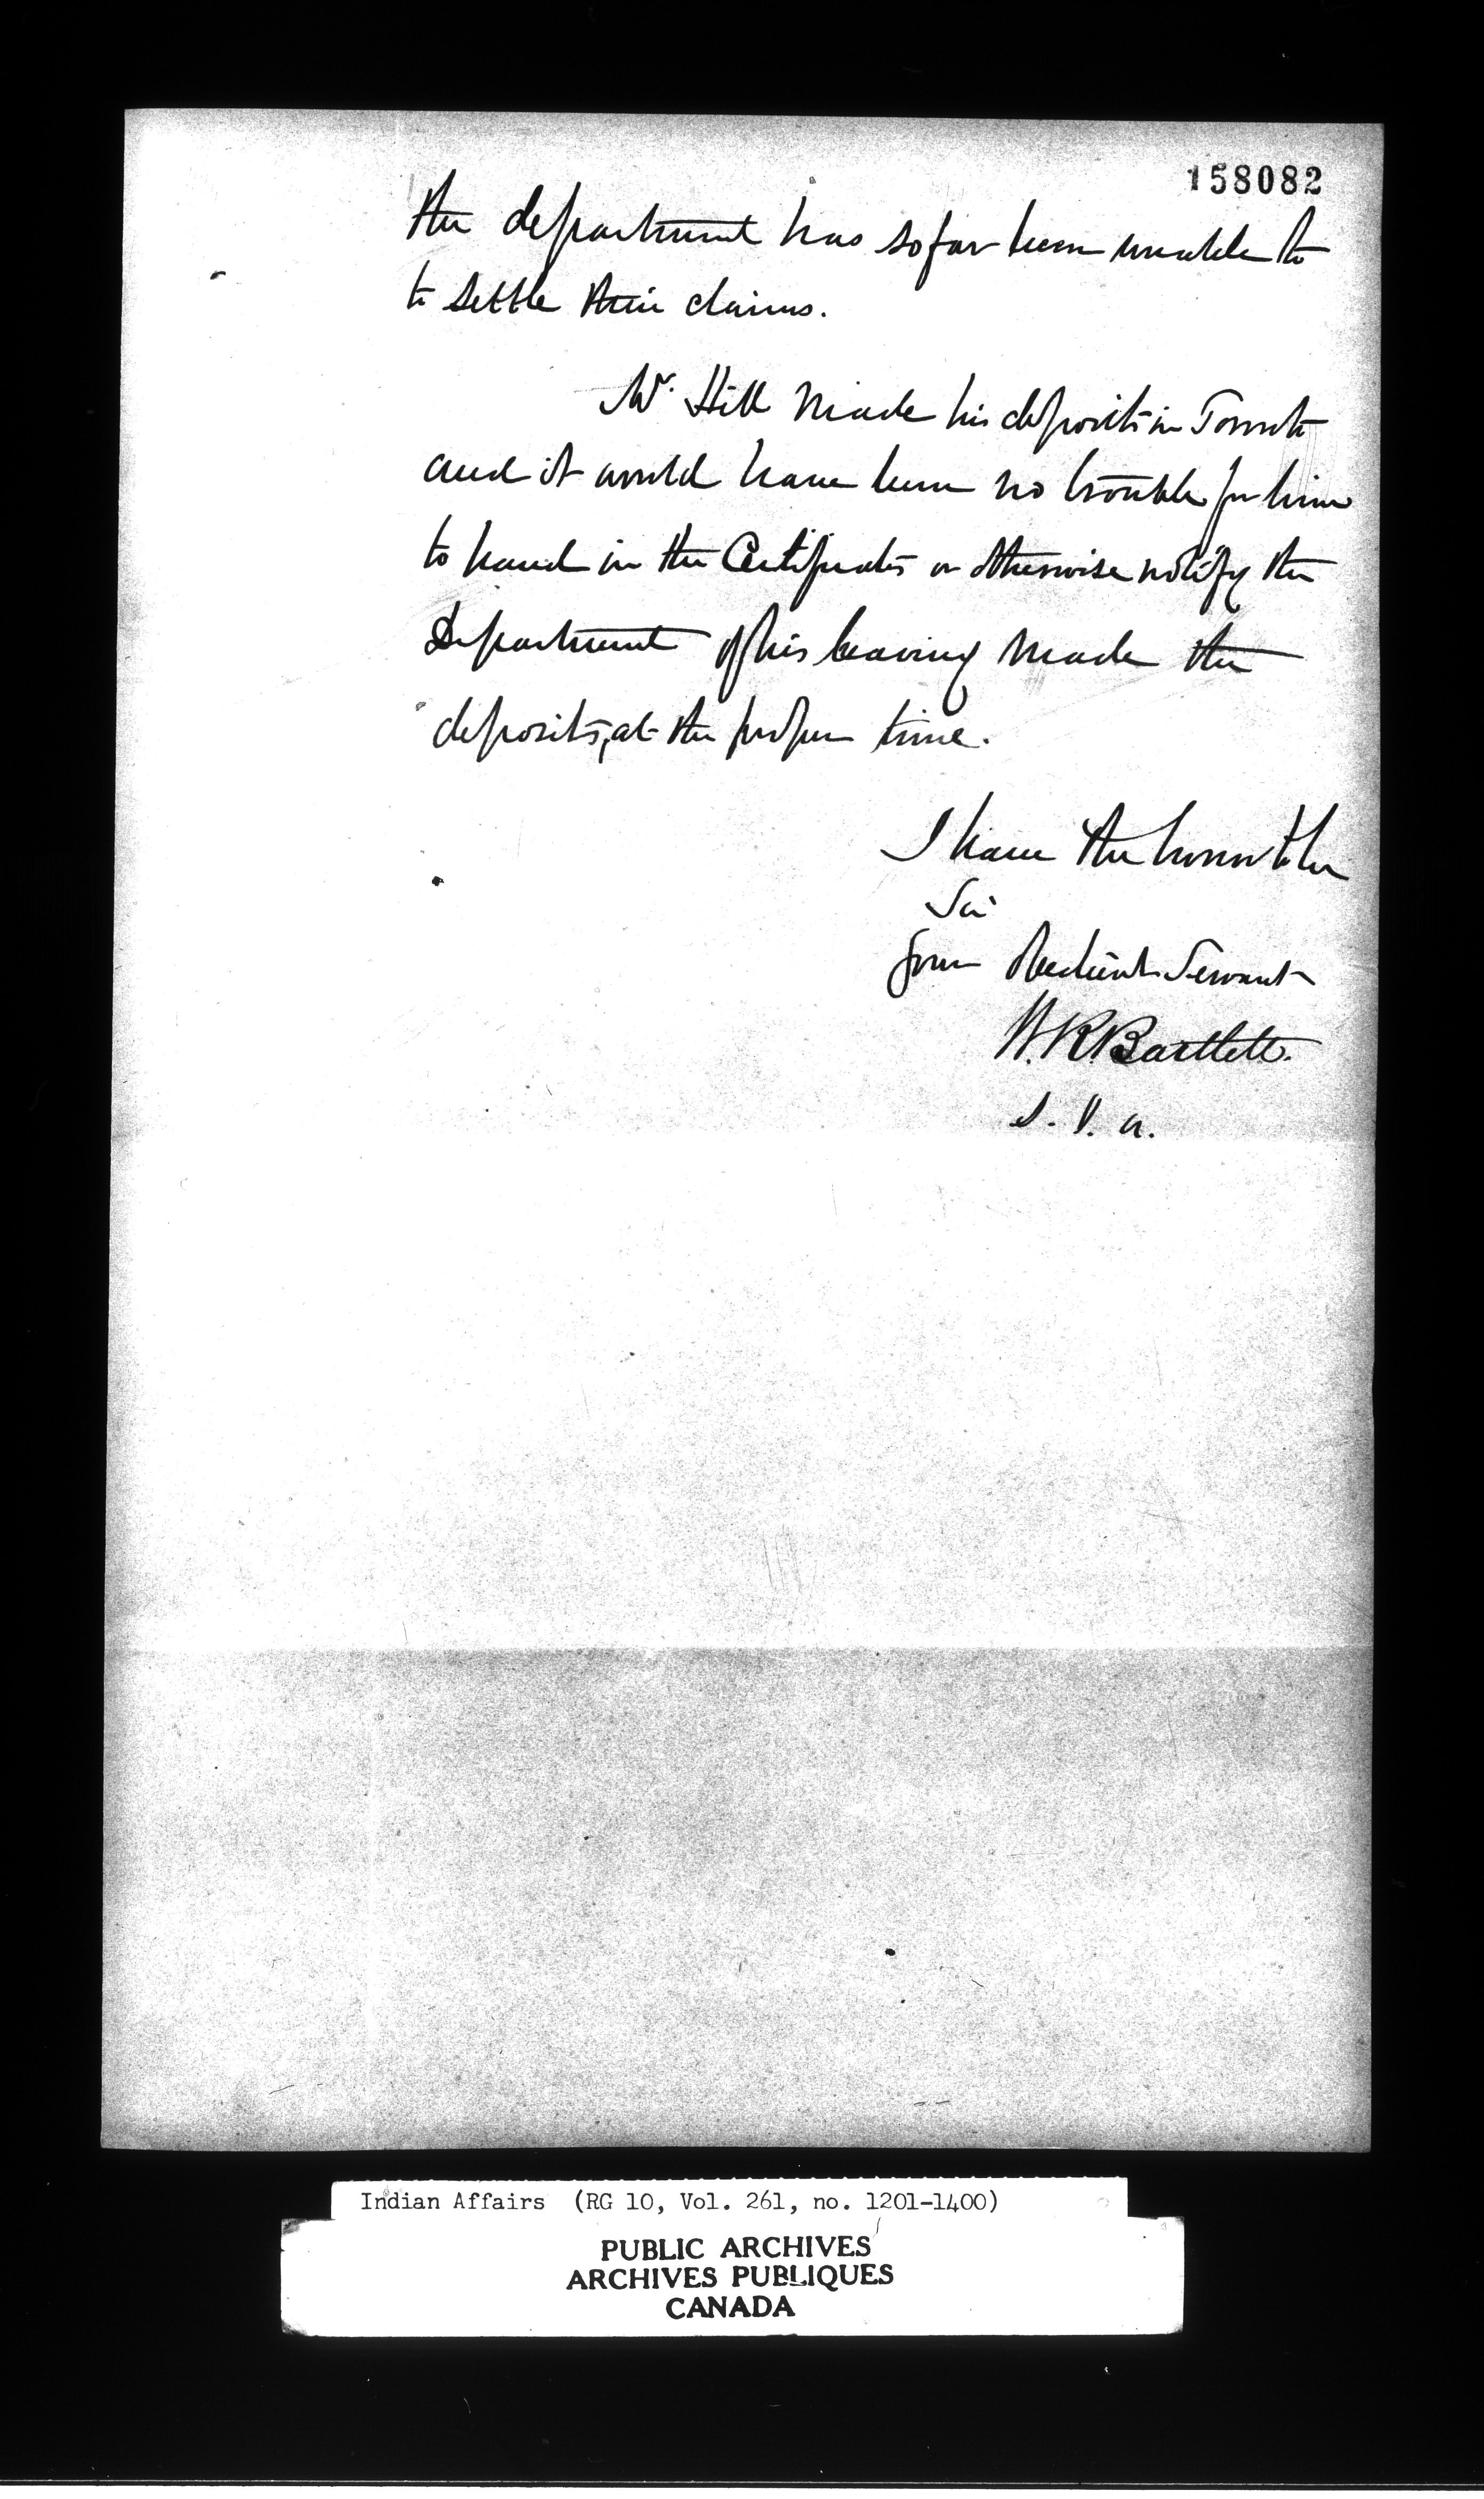 158082
the department has so far been unable to
to settle their claims.
Mr. Hill made his deposits in Toronto
and it would have been no trouble for him
to hand in the Certificates or otherwise notify the
Department of his having made the
deposits, at the proper time.
I have the honor to be
Sir
Your Obedient Servant
W. R. Bartlett.
Indian Affairs (RG 10, Vol. 261, no. 1201-1400)
PUBLIC ARCHIVES
ARCHIVES PUBLIQUES
CANADA